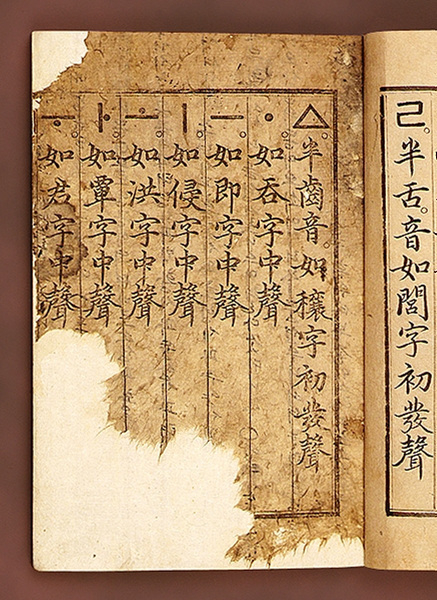 ㄹ。半舌。音如閭字初發聲
ㅿ。半齒音。如穰字初發聲
ㆍ。如呑字中聲
ㅡ。如即字中聲
ㅣ。如侵字中聲
ㅗ。如洪字中聲
ㅏ。如覃字中聲
ㅜ。如君字中聲